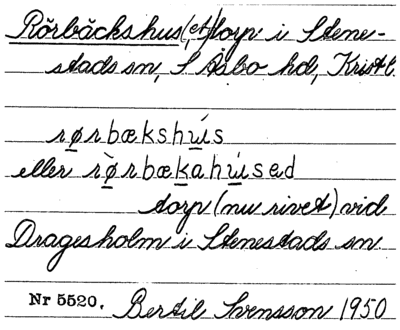 Rörbäckshus(et) torp i Stene-
stads sn, S Åsbo hd, Krist l.
rørbækshu̇s
eller rø̀rbækahu̇sed
torp (nu rivet) vid
Dragesholm i Stenestads sn.
Nr 5520. Bertil Svensson 1950